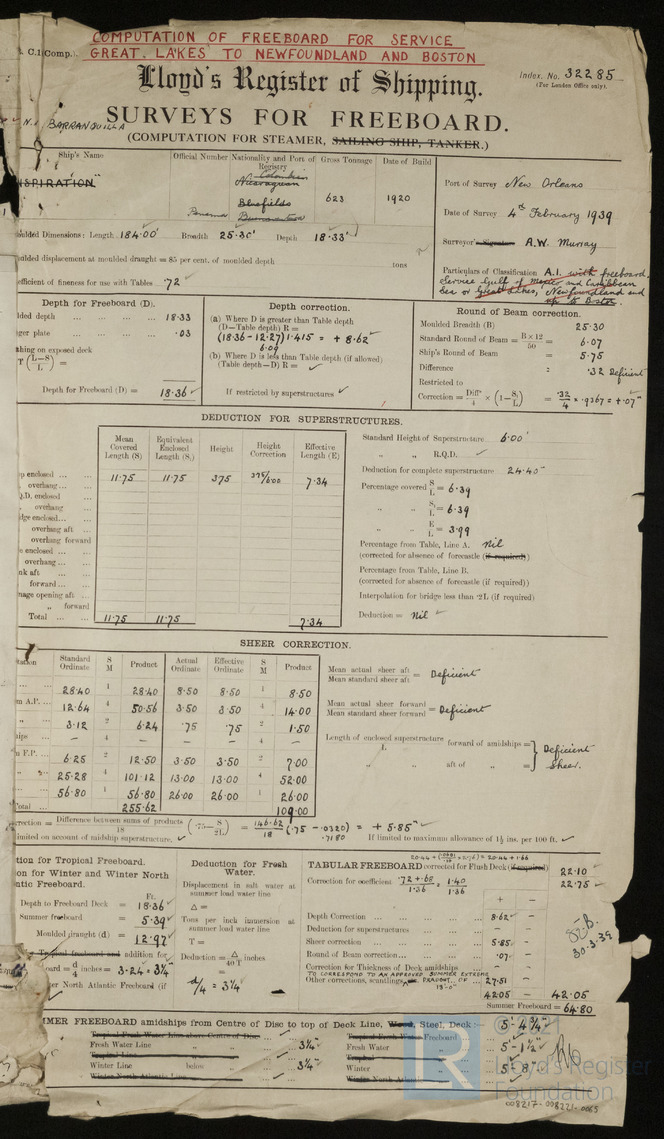 COMPUTATION OF FREEBOARD FOR SERVICE
GREAT LAKES TO NEWFOUNDLAND AND BOSTON
C.1 Comp.
Lloyd's Register of Shipping.
Index. No. 32285
(For London Office only).
BARRANQUILLA
SURVEYS FOR FREEBOARD.
(COMPUTATION FOR STEAMER, SAILING SHIP, TANKER.)
Ship's Name Official Number Nationality and Port of Registry Gross Tonnage Date of Build
INSPIRATION" Colombian Nicaraguan Bluefields 623 1920
Panama
Port of Survey New Orleans
Date of Survey 4th February 1939
Surveyor's Signature A.W. Murray
Particulars of Classification A.1. with freeboard,
Service Gulf of Mexico and Caribbean
Sea or Great Lakes, Newfoundland and
up to Boston.
Moulded Dimensions: Length 184.00' Breadth 25.30' Depth 18.33'
Moulded displacement at moulded draught = 85 per cent. of moulded depth tons
Coefficient of fineness for use with Tables .72
Depth for Freeboard (D).
Moulded depth ... ... ... 18.33
Stringer plate ... ... ... .03
Sheathing on exposed deck
T (L-S/L) =
Depth for Freeboard (D) = 18.36
Depth correction.
(a) Where D is greater than Table depth
(D—Table depth) R =
(18.36 - 12.27) 1.415 = + 8.62"
6.09
(b) Where D is less than Table depth (if allowed)
(Table depth—D) R =
If restricted by superstructures
Round of Beam correction.
Moulded Breadth (B) 25.30
Standard Round of Beam = B×12/50 = 6.07
Ship's Round of Beam = 5.75
Difference = .32 Deficient
Restricted to
Correction = Diff/4 × (1-S₁/L) = .32/4 × .9367 = +.07"
DEDUCTION FOR SUPERSTRUCTURES.
Mean Covered Length (S) Equivalent Enclosed Length (S₁) Height Height Correction Effective Length (E)
Poop enclosed ... 11.75 11.75 3.75 3.75/6.00 7.34
overhang ...
R.Q.D. enclosed
overhang
Bridge enclosed ...
overhang aft ...
overhang forward
enclosed ...
overhang ...
Trunk aft ...
forward ...
Tonnage opening aft ...
" forward
Total ... 11.75 11.75 7.34
Standard Height of Superstructure 6.00'
" " R.Q.D.
Deduction for complete superstructure 24.40"
Percentage covered S/L = 6.39
" " S₁/L = 6.39
" " E/L = 3.99
Percentage from Table, Line A. Nil
(corrected for absence of forecastle (if required))
Percentage from Table, Line B.
(corrected for absence of forecastle (if required))
Interpolation for bridge less than .2L (if required)
Deduction = Nil
SHEER CORRECTION.
Station Standard Ordinate S M Product Actual Ordinate Effective Ordinate S M Product
28.40 1 28.40 8.50 8.50 1 8.50
from A.P. ... 12.64 4 50.56 3.50 3.50 4 14.00
" 3.12 2 6.24 .75 .75 2 1.50
Amidships – 4 – – – 4 –
from F.P. 6.25 2 12.50 3.50 3.50 2 7.00
" 25.28 4 101.12 13.00 13.00 4 52.00
56.80 1 56.80 26.00 26.00 1 26.00
Total 255.62 109.00
Mean actual sheer aft / Mean standard sheer aft = Deficient
Mean actual sheer forward / Mean standard sheer forward = Deficient
Length of enclosed superstructure / L forward of amidships =
" " aft of " = } Deficient Sheer.
Correction = Difference between sums of products / 18 (.75 - S/2L) = 146.62/18 (.75 - .0320) = + 5.85"
.7180
If limited on account of midship superstructure. If limited to maximum allowance of 1½ ins. per 100 ft.
Deduction for Tropical Freeboard.
Addition for Winter and Winter North
Atlantic Freeboard.
Ft.
Depth to Freeboard Deck = 18.36
Summer freeboard = 5.39
Moulded draught (d) = 12.97
Tropical freeboard and addition for
Winter freeboard = d/4 inches = 3.24 = 3¼"
Winter North Atlantic Freeboard (if
Deduction for Fresh Water.
Displacement in salt water at
summer load water line
Δ =
Tons per inch immersion at
summer load water line
T =
Deduction = Δ/40T inches
=
d/4 = 3¼"
TABULAR FREEBOARD corrected for Flush Deck (if required) 22.10
Correction for coefficient .72 + .68 / 1.36 = 1.40 / 1.36 22.75
+ –
Depth Correction ... 8.62 –
Deduction for superstructures ... – –
Sheer correction ... 5.85 –
Round of Beam correction ... .07 –
Correction for Thickness of Deck amidships – –
TO CORRESPOND TO AN APPROVED SUMMER EXTREME
Other corrections, scantlings, DRAUGHT OF 13'-0" 27.51 –
42.05 – 42.05
Summer Freeboard = 64.80
30.3.39
SUMMER FREEBOARD amidships from Centre of Disc to top of Deck Line, Wood, Steel, Deck:— 5'-4¾"
Tropical Fresh Water Line above Centre of Disc Tropical Fresh Water Freeboard
Fresh Water Line " 3¼" Fresh Water " 5'-1½"
Tropical Line " Tropical "
Winter Line below " 3¼" Winter " 5'-8"
Winter North Atlantic Line " Winter North Atlantic "
LR
Lloyd's Register
Foundation
008217-008221-0065